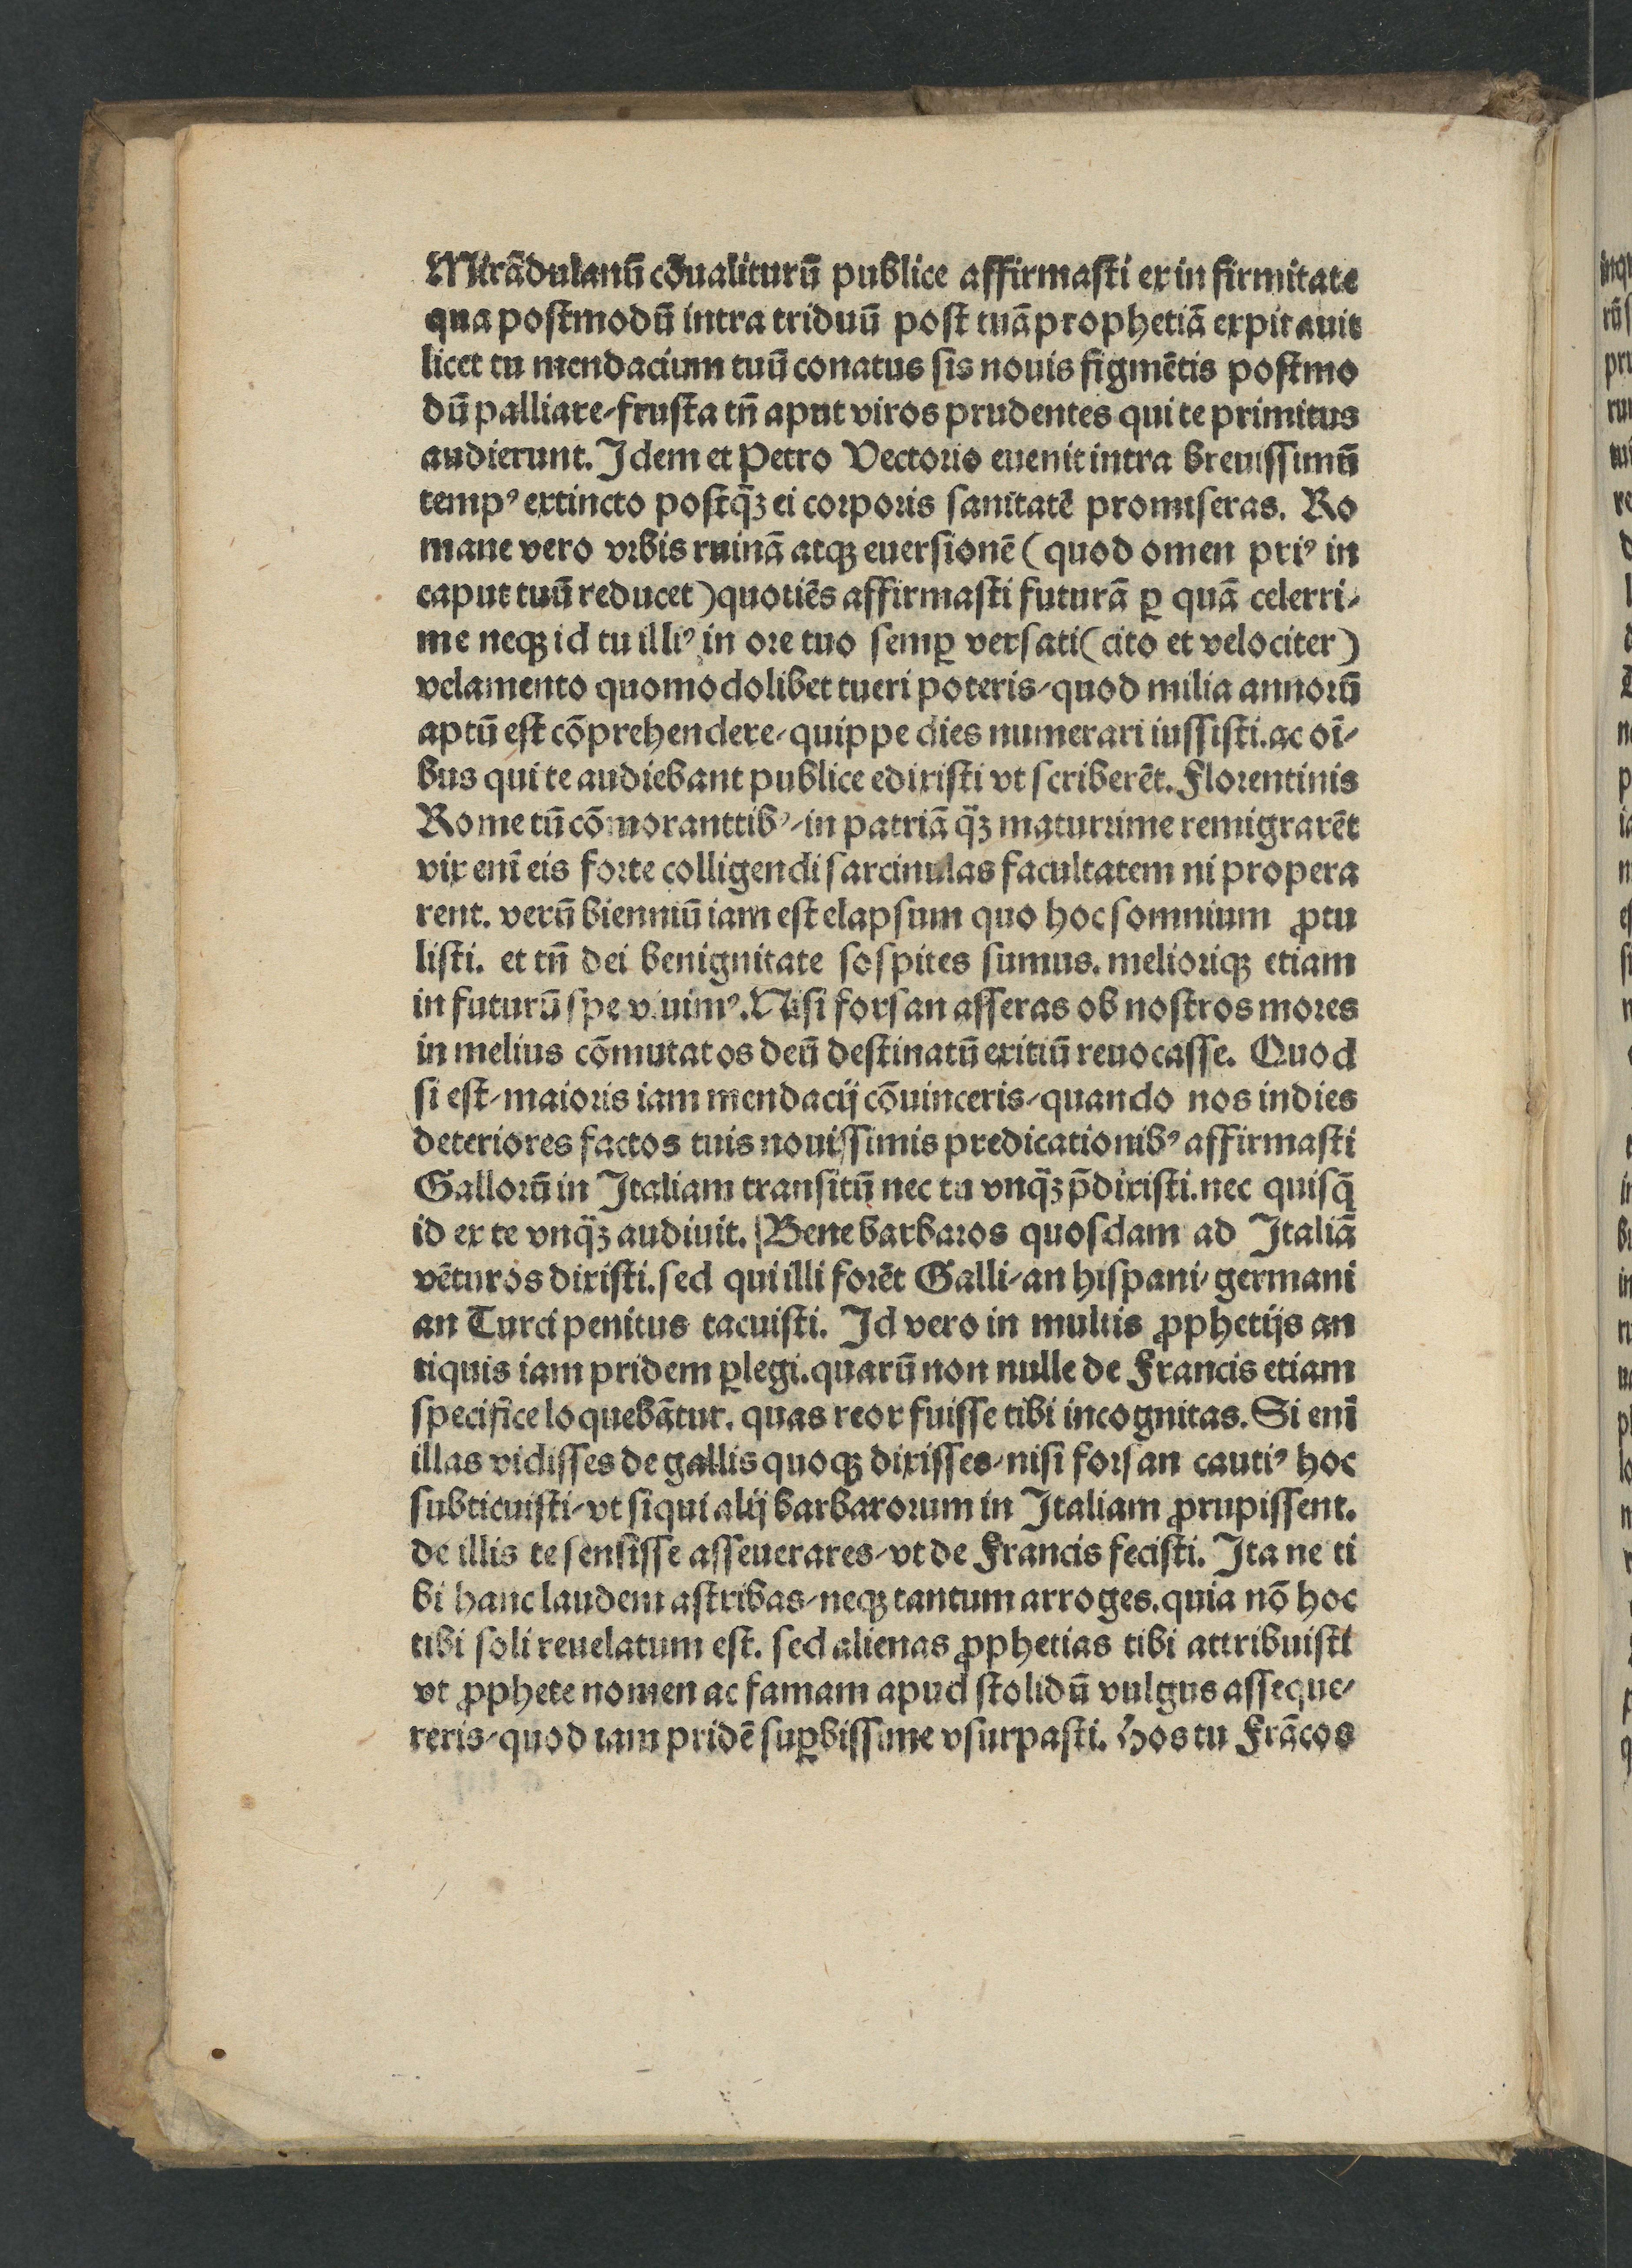 Mirãdulanũ cõualiturũ publice affirmasti ex in firmitate
qua postmodũ intra triduũ post tuã prophetiã expirauit
licet tu mendacium tuũ conatus sis nouis figmẽtis postmo
dũ palliare/frusta tñ aput viros prudentes qui te primitus
audierunt. Idem et Petro Vectorio euenit intra breuissimũ
tempꝰ extincto postq̃ꝫ ei corporis sanitatẽ promiseras. Ro
mane vero vrbis ruinã atqꝫ euersionẽ (quod omen priꝰ in
caput tuũ reducet) quotiẽs affirmasti futurã ꝑ quã celerri/
me neqꝫ id tu illiꝰ in ore tuo semꝑ versati (cito et velociter)
velamento quomodolibet tueri poteris/quod milia annorũ
aptũ est cõprehendere/quippe dies numerari iussisti. ac oĩ/
bus qui te audiebant publice edixisti vt scriberẽt. Florentinis
Rome tũ cõmoranttibꝰ/in patriã q̃ꝫ maturime remigrarẽt
vix enĩ eis forte colligendi sarcinulas facultatem ni propera
rent. verũ bienniũ iam est elapsum quo hoc somnium ꝓtu
listi. et tñ dei benignitate sospites sumus. melioriqꝫ etiam
in futurũ spe viuimꝰ. Nisi forsan asseras ob nostros mores
in melius cõmutatos deũ destinatũ exitiũ reuocasse. Quod
si est/maioris iam mendacij cõuinceris/quando nos indies
deteriores factos tuis nouissimis predicationibꝰ affirmasti
Gallorũ in Italiam transitũ nec tu vnq̃ꝫ p̃dixisti. nec quisq̃
id ex te vnq̃ꝫ audiuit. Bene barbaros quosdam ad Italiã
vẽturos dixisti. sed qui illi forẽt Galli/an hispani/germani
an Turci penitus tacuisti. Id vero in multis ꝓphetijs an
tiquis iam pridem ꝑlegi. quarũ non nulle de Francis etiam
specifice loquebãtur. quas reor fuisse tibi incognitas. Si enĩ
illas vidisses de gallis quoqꝫ dixisses/nisi forsan cautiꝰ hoc
subticuisti/vt siqui alij barbarorum in Italiam ꝓrupissent.
de illis te sensisse asseuerares/vt de Francis fecisti. Ita ne ti
bi hanc laudem astribas/neqꝫ tantum arroges. quia nõ hoc
tibi soli reuelatum est. sed alienas ꝓphetias tibi attribuisti
vt ꝓphete nomen ac famam apud stolidũ vulgus asseque/
reris/quod iam pridẽ suꝑbissime vsurpasti. Hos tu Frãcos